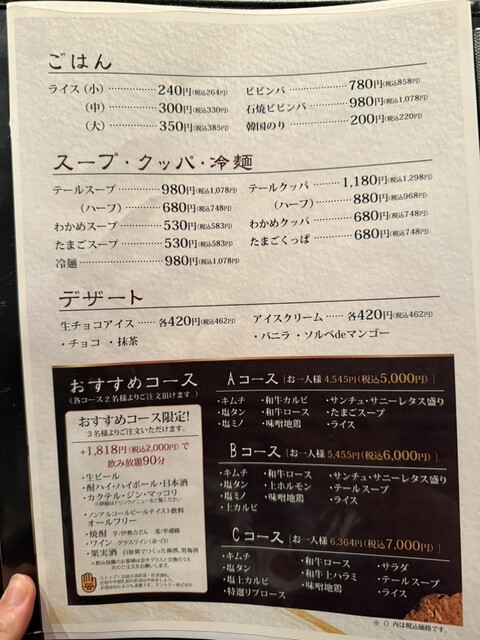 ごはん
ライス（小）………… 240円(税込264円)
（中）………… 300円(税込330円)
（大）………… 350円(税込385円)
ビビンバ………… 780円(税込858円)
石焼ビビンバ……… 980円(税込1,078円)
韓国のり………… 200円(税込220円)
スープ・クッパ・冷麺
テールスープ……… 980円(税込1,078円)
（ハーフ）……… 680円(税込748円)
わかめスープ……… 530円(税込583円)
たまごスープ……… 530円(税込583円)
冷麺……………… 980円(税込1,078円)
テールクッパ……… 1,180円(税込1,298円)
（ハーフ）……… 880円(税込968円)
わかめクッパ……… 680円(税込748円)
たまごくっぱ……… 680円(税込748円)
デザート
生チョコアイス…… 各420円(税込462円)
・チョコ ・抹茶
アイスクリーム…… 各420円(税込462円)
・バニラ ・ソルベdeマンゴー
おすすめコース
(各コース2名様よりご注文頂けます。)
おすすめコース限定!
3名様よりご注文いただけます。
+1,818円(税込2,000円)で
飲み放題90分
・生ビール
・酎ハイ・ハイボール・日本酒
・カクテル・ジン・マッコリ
・ノンアルコールビールテイスト飲料
オールフリー
・焼酎
・ワイン グラスワイン(赤・白)
・果実酒
Aコース［お一人様 4,545円(税込5,000円)］
・キムチ
・塩タン
・塩ミノ
・和牛カルビ
・和牛ロース
・味噌地鶏
・サンチュ・サニーレタス盛り
・たまごスープ
・ライス
Bコース［お一人様 5,455円(税込6,000円)］
・キムチ
・塩タン
・塩ミノ
・上カルビ
・和牛ロース
・上ホルモン
・味噌地鶏
・サンチュ・サニーレタス盛り
・テールスープ
・ライス
Cコース［お一人様 6,364円(税込7,000円)］
・キムチ
・塩タン
・塩上カルビ
・特選リブロース
・和牛ロース
・和牛上ハラミ
・味噌地鶏
・サラダ
・テールスープ
・ライス
※（）内は税込価格です。